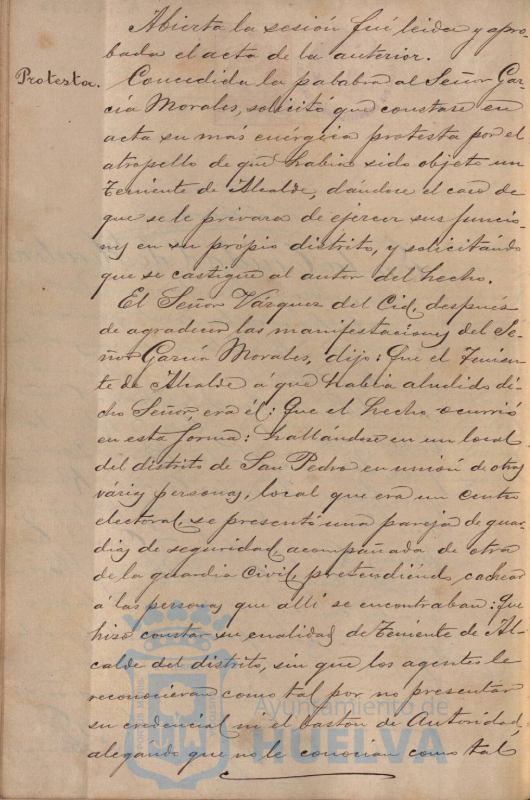 Abierta la sesión fué leida y apro-
bada el acta de la anterior.
Protesta. Concedida la palabra al Señor Gar-
cía Morales, solicitó que constase en
acta su más enérgica protesta por el
atropello de que habia sido objeto un
Teniente de Alcalde, dándose el caso de
que se le privara de ejercer sus funcio-
nes en su própio distrito, y solicitándo
que se castigue al autor del hecho.
El Señor Vázquez del Cid, después
de agradecer las manifestaciones del Se-
ñor García Morales, dijo: Que el Tenien-
te de Alcalde á que habia aludido di-
cho Señor, era él: Que el hecho ocurrió
en esta forma: hallándose en un local
del distrito de San Pedro en unión de otras
várias personas, local que era un centro
electoral, se presentó una pareja de guar-
dias de seguridad, acompañada de otra
de la guardia Civil, pretendiéndo cachear
á las personas que allí se encontraban: Que
hizo constar su cualidad de Teniente de Al-
calde del distrito, sin que los agentes le
reconocieran como tal por no presentar
su credencial ni el baston de Autoridad,
alegando que no le conocian como tal
Ayuntamiento de
HUELVA